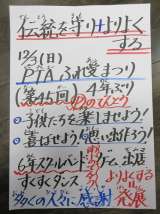 伝統を守り+よりよく
する
12/3(日)
PTAふれ愛まつり
(第45回) 4年ぶり
◦子供たちを楽しませよう!
◦喜ばせよう!思い出作ろう!
6年スクールバンド ゲーム 出店
すくすくダンス よりよくする
多くの人々に感謝 発展